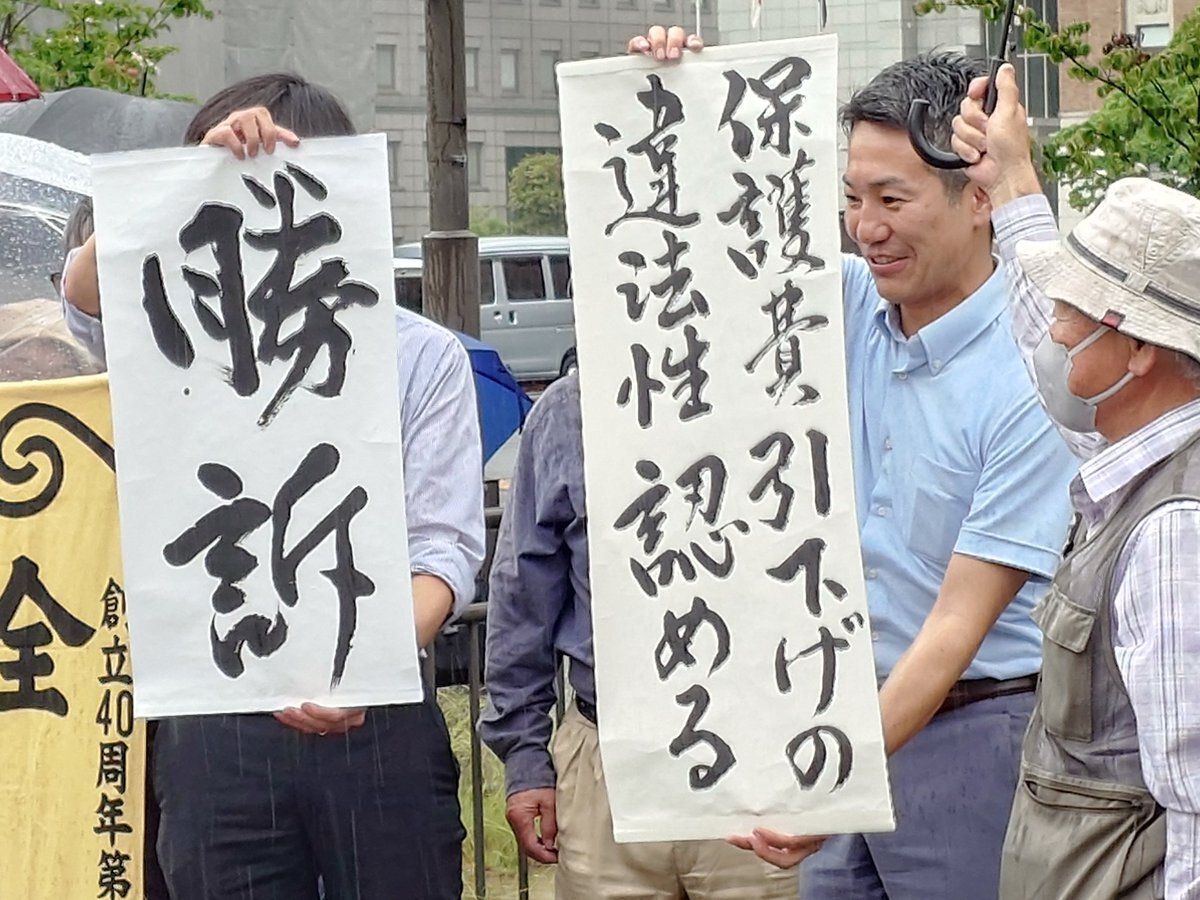 勝訴
保護費引下げの
違法性認める
全
創立40周年第